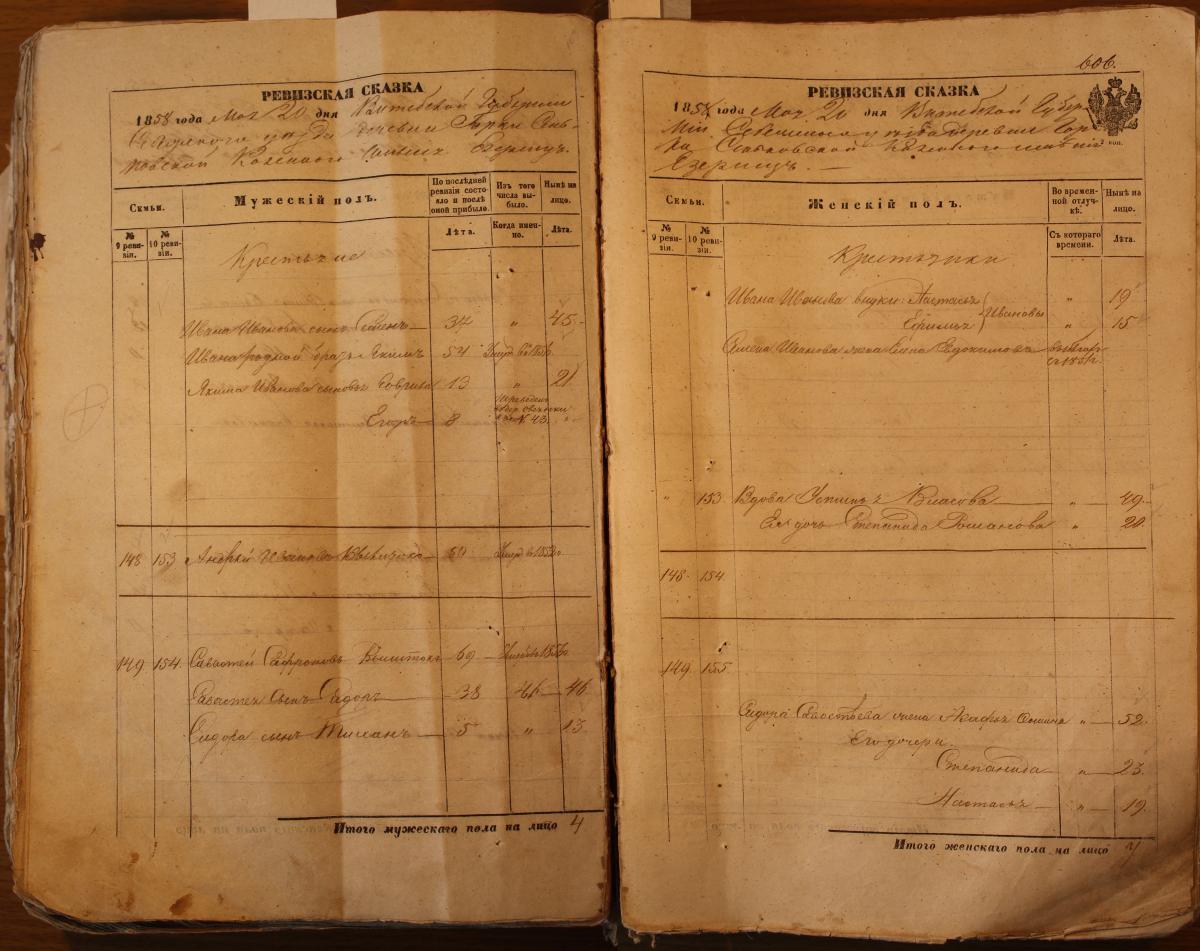 РЕВИЗСКАЯ СКАЗКА
1858 года Мая 20 дня Витебской Губернии
уезда деревни Горки
Казеннаго имения Езерищ.
Семьи.
Мужескій полъ.
По последней ревизіи состояло и послѣ оной прибыло.
Изъ того числа выбыло.
Нынѣ на лицо.
№ 9 ревизіи.
№ 10 ревизіи.
Лѣта.
Когда именно.
Лѣта.
Крестьяне
Ивана Иванова сынъ Семенъ 37 „ 45
Ивана родной братъ Якимъ 54 Умеръ въ 1856
Якима Иванова сыновья Гаврила 13 „ 21
Егоръ 8 переведенъ № 43 „
148 153 Андрей Иванов 60 Умеръ въ 1852
149 154 Савостей Сафроновъ 69 1856
Савостея сынъ Сидоръ 38 „ 46
Сидора сынъ 5 „ 13
Итого мужескаго пола на лицо 4
606.
РЕВИЗСКАЯ СКАЗКА
1858 года Мая 20 дня Витебской Губернии
уезда деревни Горки Казеннаго имения
Езерищъ.
Семьи.
Женскій полъ.
Во временной отлучкѣ.
Нынѣ на лицо.
№ 9 ревизіи.
№ 10 ревизіи.
Съ котораго времени.
Лѣта.
Крестьянки
Ивана Иванова внучки: Настасья „ 19
Ивановы
Ефимья „ 15
Семена Иванова жена Елена Евдокимова
„ 153 Вдова Устинья Власова „ 49
Ея дочь Степанида Романова „ 20
148 154
149 155
Сидора Савостьева жена „ 52
Его дочери
Степанида „ 23
Настасья „ 19
Итого женскаго пола на лицо 7